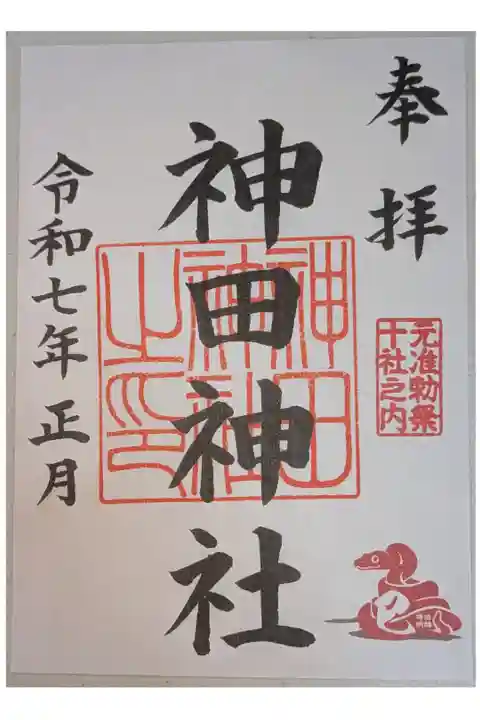 奉拝
元准勅祭
十社之内
神田神社
神田
神社
之印
令和七年正月
巳